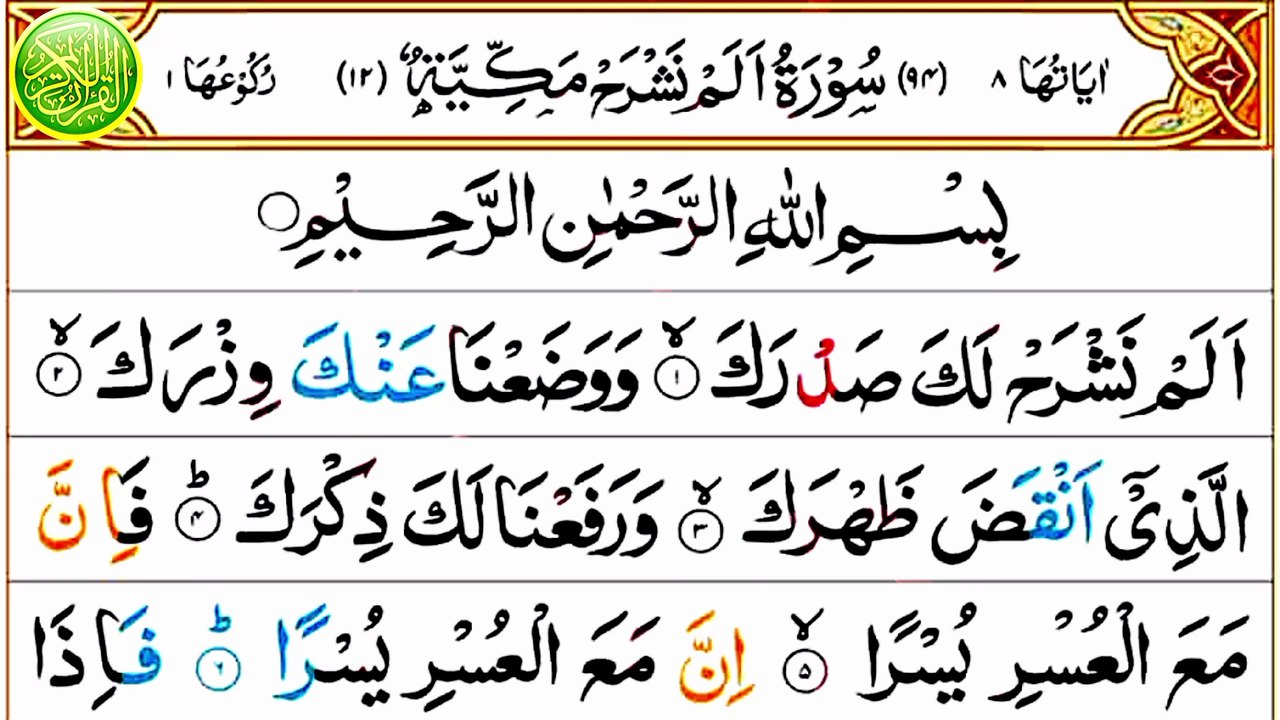 القرآن الكريم
اٰيَاتُهَا ٨ (٩٤) سُوْرَةُ اَلَمْ نَشْرَحْ مَكِّيَّةٌ (١٢) رُكُوْعُهَا ١
بِسْمِ اللّٰهِ الرَّحْمٰنِ الرَّحِيْمِ
اَلَمْ نَشْرَحْ لَكَ صَدْرَكَ ۙ ١ وَوَضَعْنَا عَنْكَ وِزْرَكَ ۙ ٢
الَّذِىْٓ اَنْقَضَ ظَهْرَكَ ۙ ٣ وَرَفَعْنَا لَكَ ذِكْرَكَ ؕ ٤ فَاِنَّ
مَعَ الْعُسْرِ يُسْرًا ۙ ٥ اِنَّ مَعَ الْعُسْرِ يُسْرًا ؕ ٦ فَاِذَا